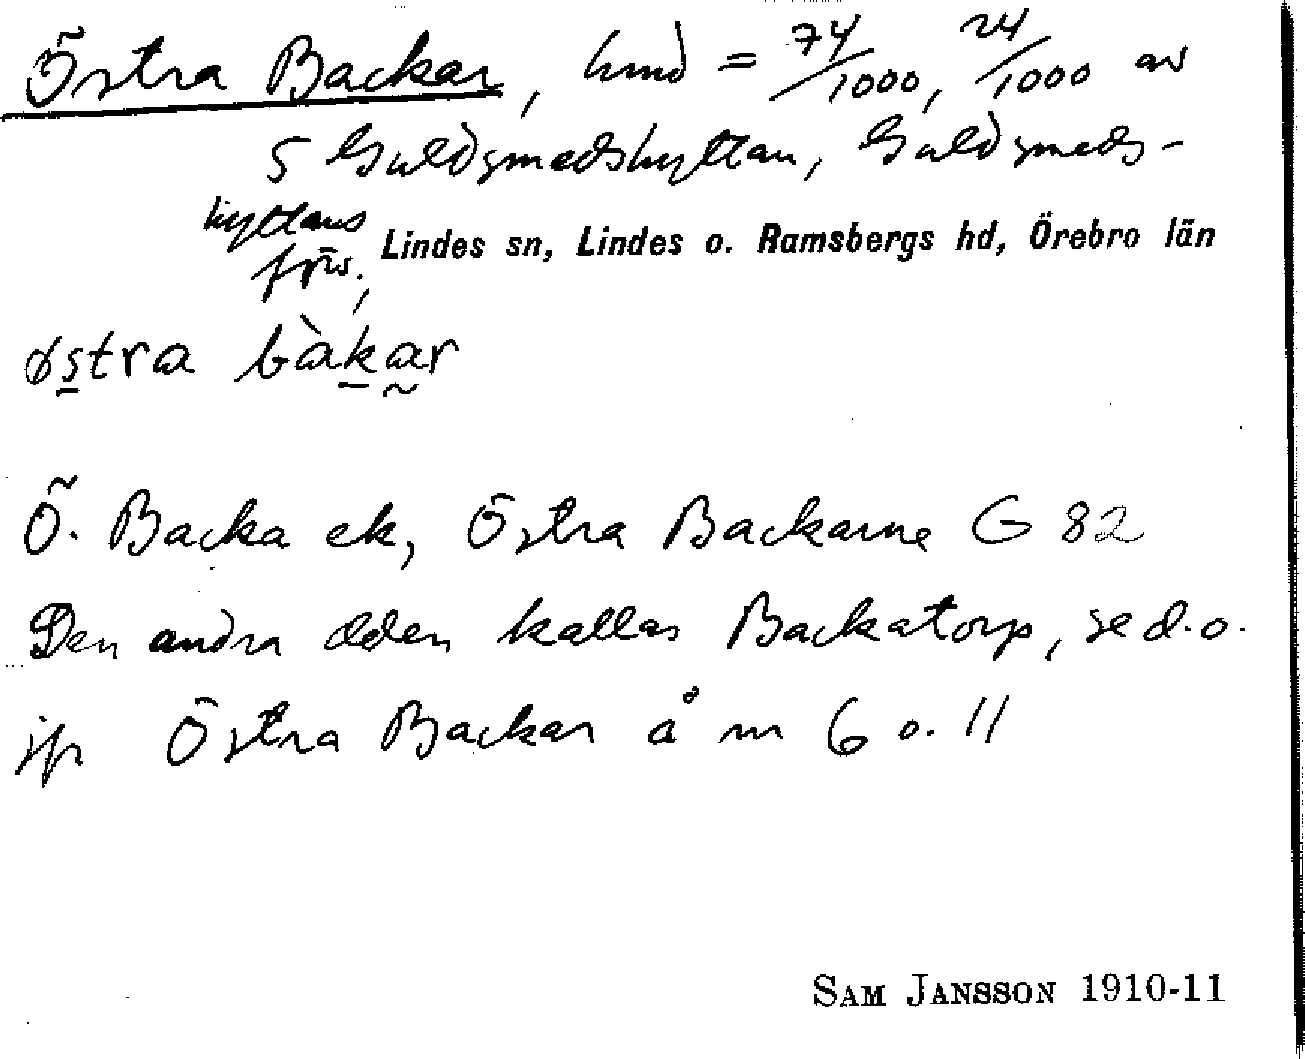 Östra Backar, hmd = 74/1000, 24/1000 av
5 Guldsmedshyttan, Guldsmeds-
hyttans
förs., Lindes sn, Lindes o. Ramsbergs hd, Örebro län
østra bàkar
Ö. Backa ek, Östra Backarne G 82
Den andra delen kallas Backatorp, se d.o.
jfr Östra Backar å nr 6 o. 11
SAM JANSSON 1910-11